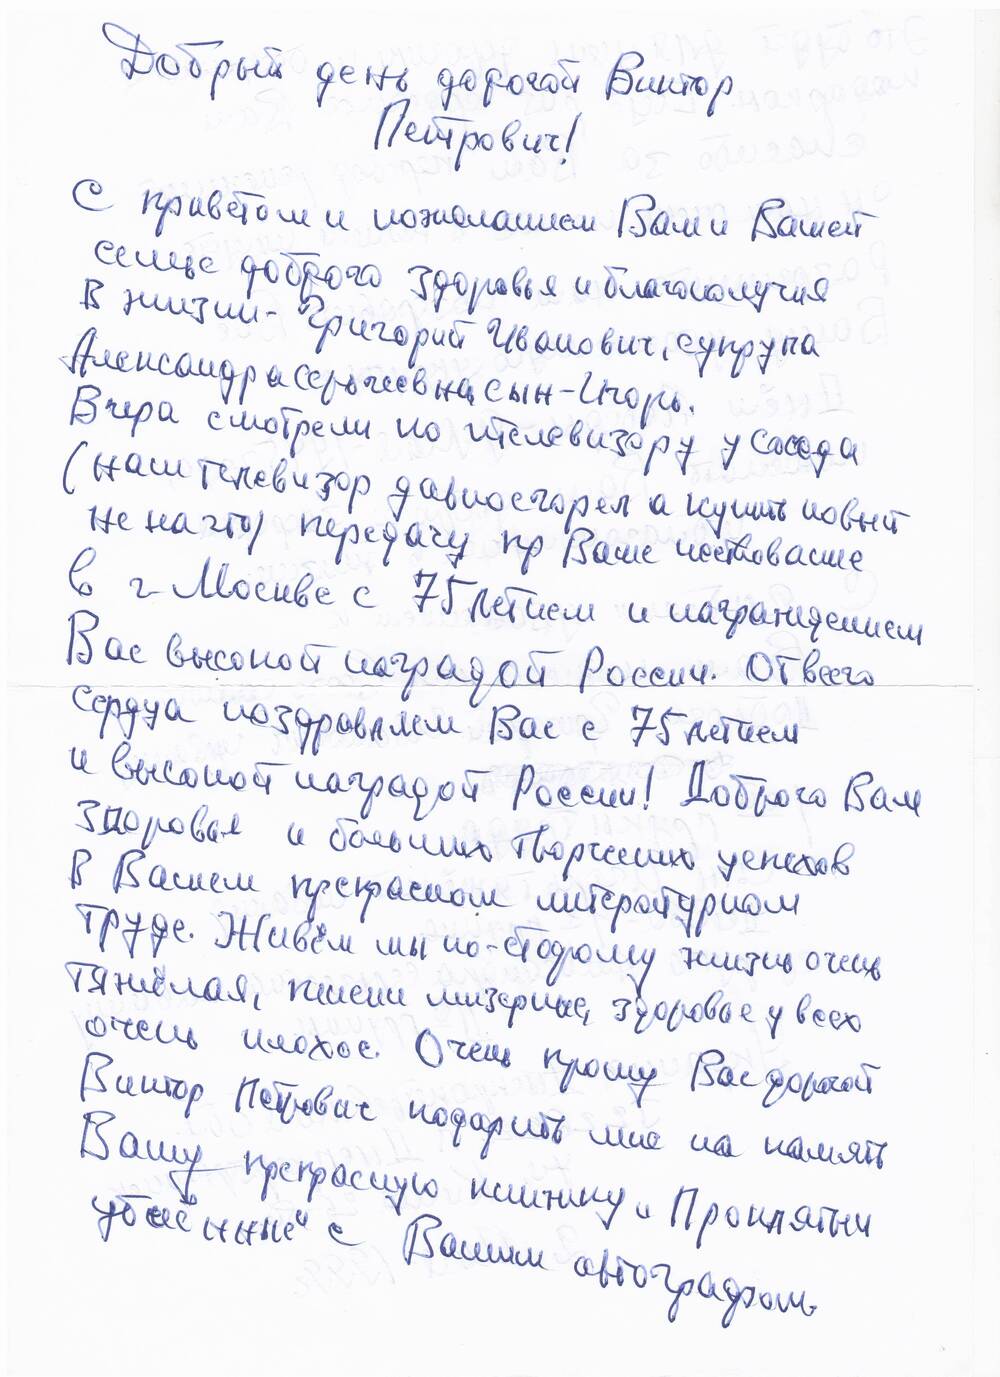 Добрый день дорогой Виктор
Петрович!
С приветом и пожеланием Вам и Вашей
семье доброго здоровья и благополучия
в жизни - Григорий Иванович, супруга
Александра Сергеевна, сын - Игорь.
Вчера смотрели по телевизору у соседа
(наш телевизор давно сгорел а купить новый
не на что) передачу пр Ваше чествование
в г Москве с 75 летием и награждением
Вас высокой наградой России. От всего
сердца поздравляем Вас с 75 летием
и высокой наградой России! Доброго Вам
здоровья и больших творческих успехов
в Вашем прекрасном литературном
труде. Живём мы по-старому жизнь очень
тяжёлая, пенсии мизерные, здоровье у всех
очень плохое. Очень прошу Вас дорогой
Виктор Петрович подарить мне на память
Вашу прекрасную книжку „Прокляты и
убиенные" с Вашим автографом.